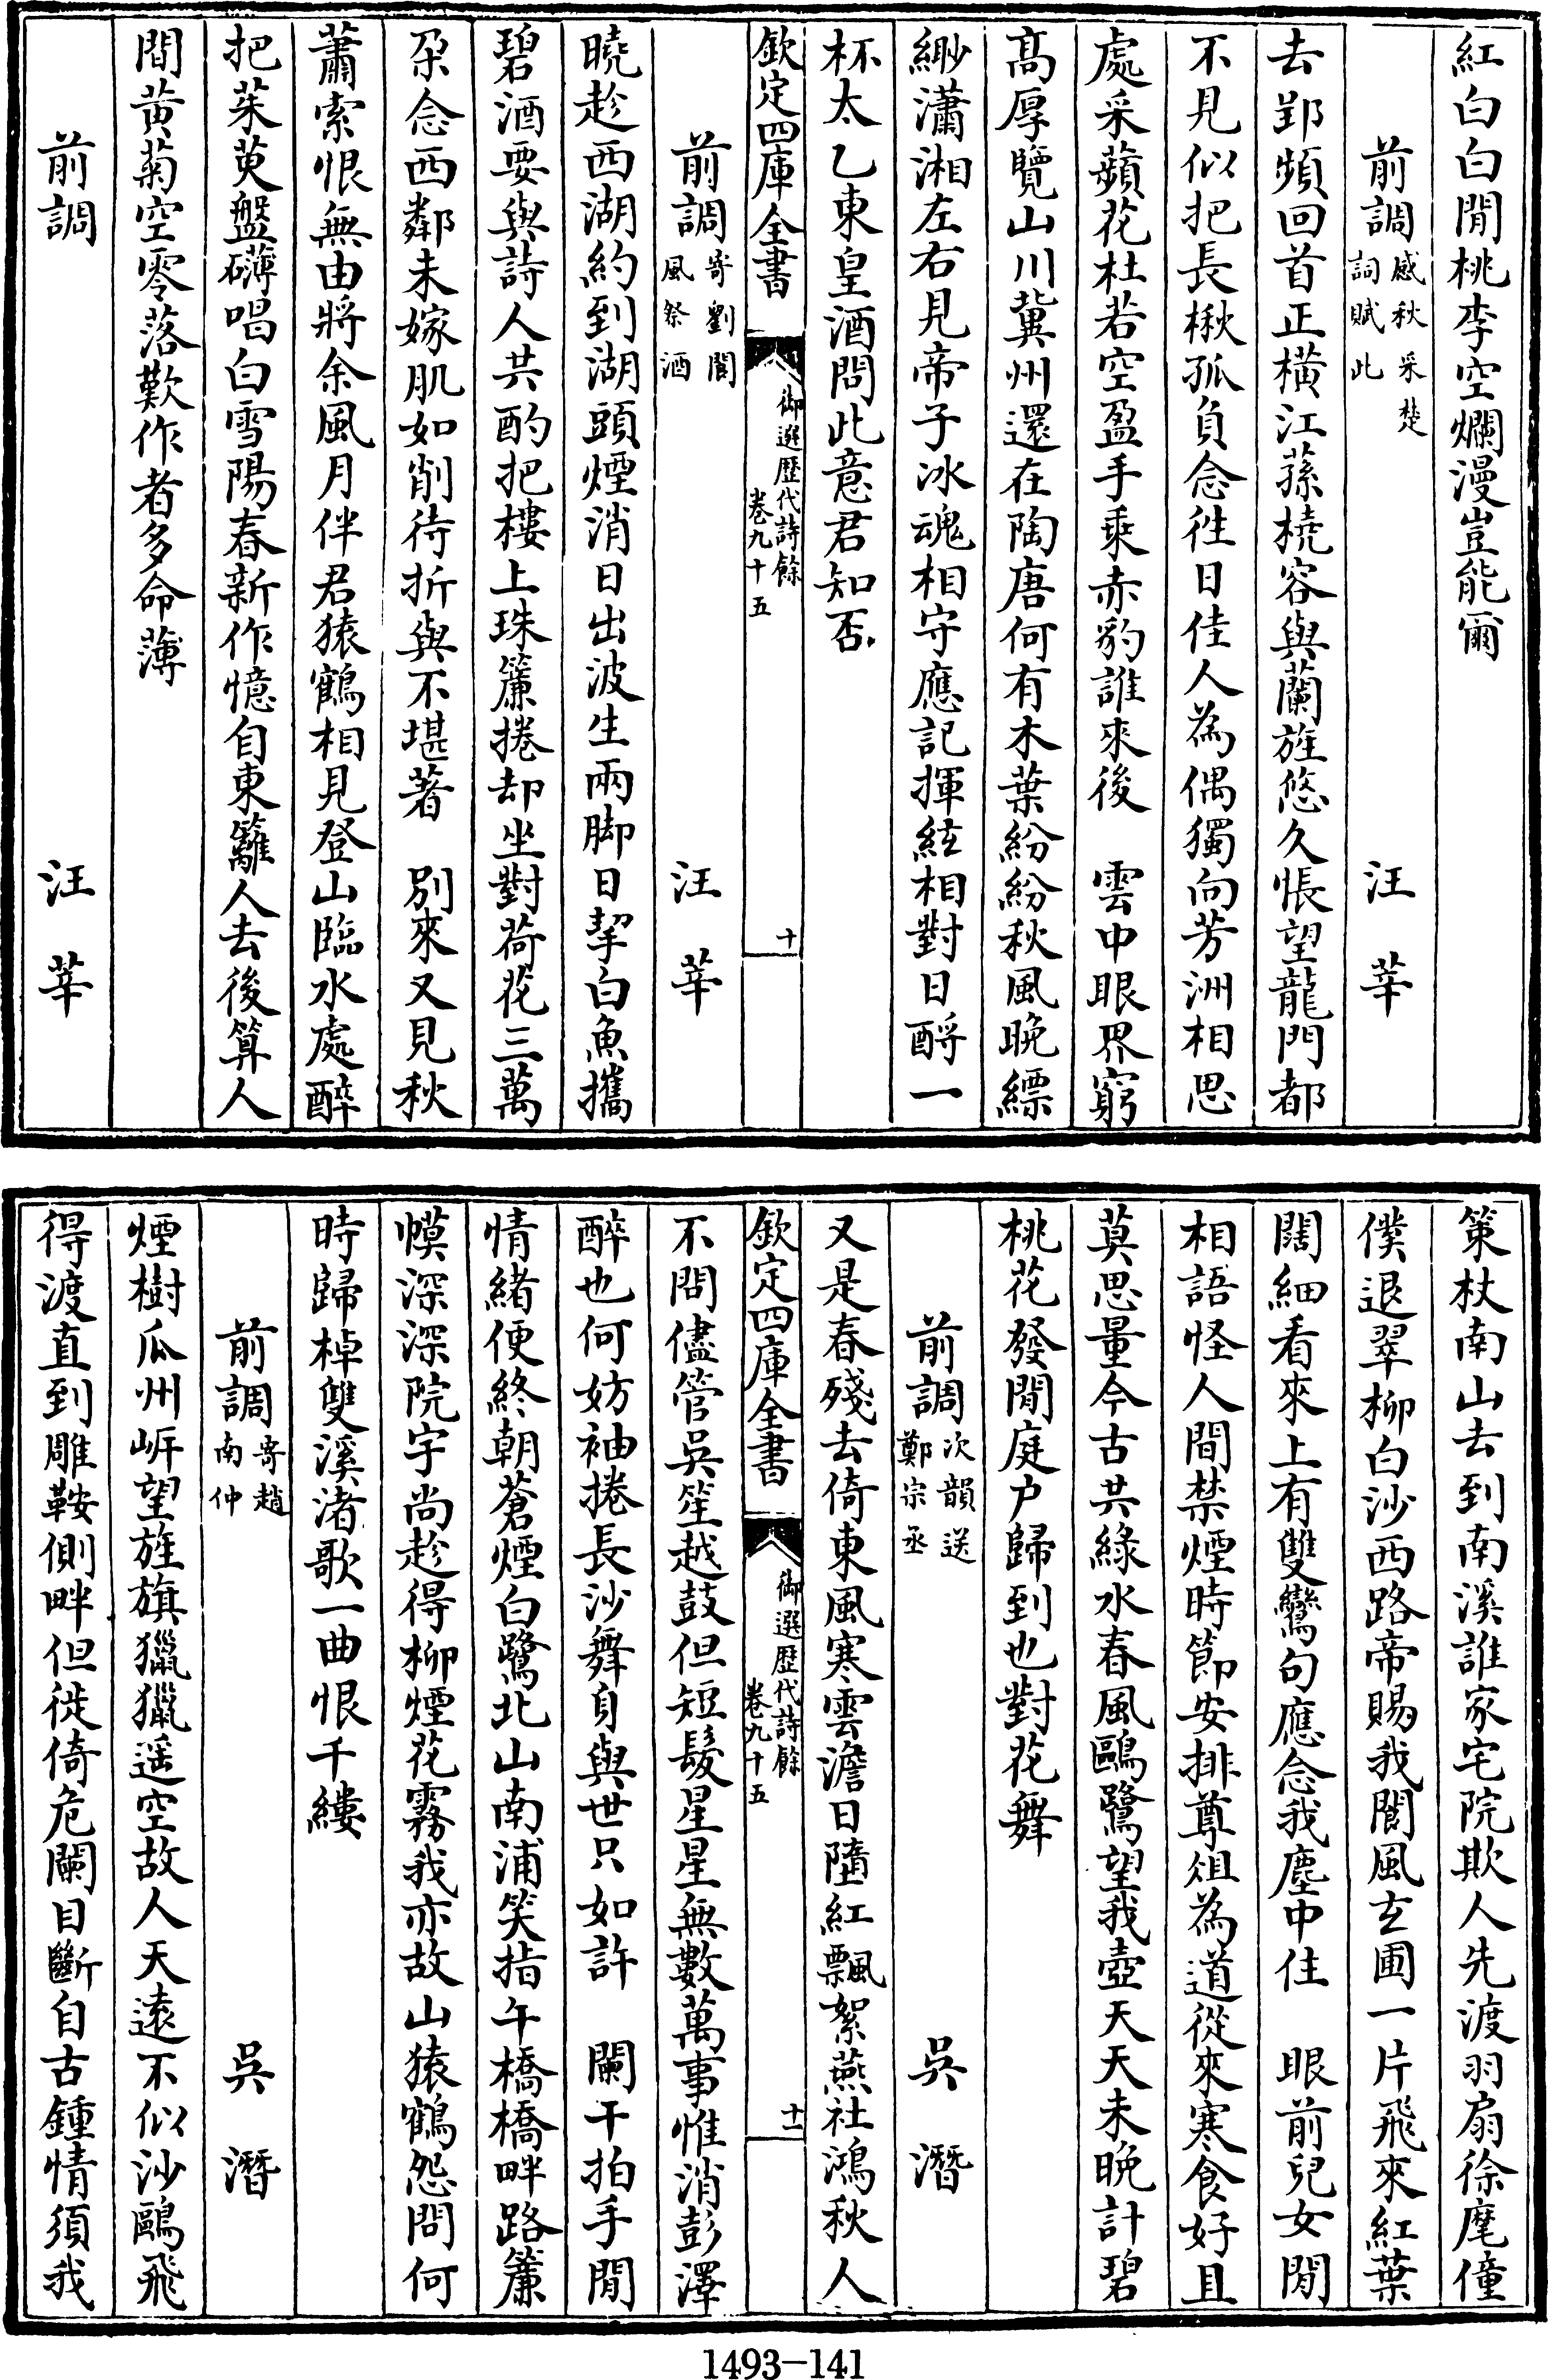 紅白白閒桃李空爛漫豈能爾
前調感秋采楚詞賦此　汪莘
去郢頻回首正橫江蓀橈容與蘭旌悠久悵望龍門都
不見似把長楸孤負念徃日佳人為偶獨向芳洲相思
處采蘋花杜若空盈手乘赤豹誰來後　雲中眼界窮
髙厚覽山川冀州還在陶唐何有木葉紛紛秋風晚縹
緲瀟湘左右見帝子冰魂相守應記揮絃相對日酹一
杯太乙東皇酒問此意君知否
欽定四庫全書　御選歷代詩餘卷九十五　十
前調寄劉閬風祭酒　汪莘
曉趁西湖約到湖頭煙消日出波生兩脚日挈白魚攜
碧酒要與詩人共酌把樓上珠簾捲却坐對荷花三萬
朶念西鄰未嫁肌如削待折與不堪著　別來又見秋
蕭索恨無由將余風月伴君猿鶴相見登山臨水處醉
把茱萸盤礴唱白雪陽春新作憶自東籬人去後算人
間黄菊空零落歎作者多命薄
前調　汪莘
策杖南山去到南溪誰家宅院欺人先渡羽扇徐麾僮
僕退翠柳白沙西路帝賜我閬風玄圃一片飛來紅葉
闊細看來上有雙鸞句應念我塵中住　眼前兒女閒
相語怪人間禁煙時節安排尊俎為道從來寒食好且
莫思量今古共綠水春風鷗鷺望我壺天天未晚計碧
桃花發閒庭户歸到也對花舞
前調次韻送鄭宗丞　吳潛
又是春殘去倚東風寒雲澹日墮紅飄絮燕社鴻秋人
欽定四庫全書　御選歷代詩餘卷九十五　十一
不問儘管吳笙越鼓但短髮星星無數萬事惟消彭澤
醉也何妨袖捲長沙舞身與世只如許　闌干拍手閒
情緒便終朝蒼煙白鷺北山南浦笑指午橋橋畔路簾
幙深深院宇尚趁得柳煙花霧我亦故山猿鶴怨問何
時歸棹雙溪渚歌一曲恨千縷
前調寄趙南仲　吳潛
煙樹瓜州岍望旌旗獵獵遥空故人天逺不似沙鷗飛
得渡直到雕鞍側畔但徙倚危闌目斷自古鍾情須我
1493-141